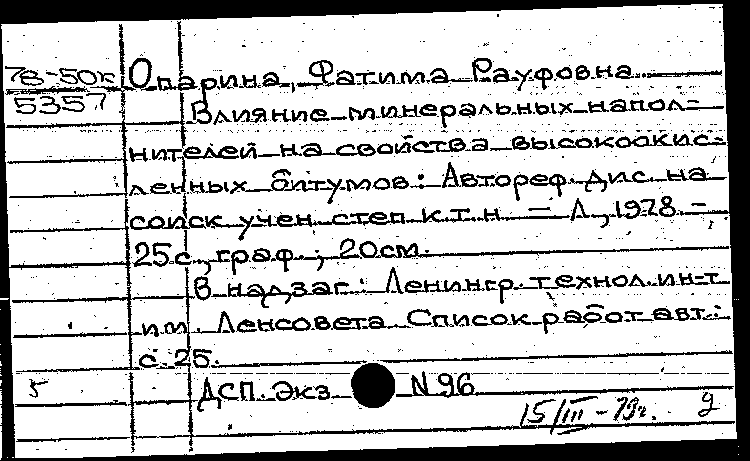 78-50к Опарина, Фатима Рауфовна
5357 Влияние минеральных напол-
нителей на свойства высокоокис-
ленных битумов: Автореф. дис. на
соиск учен. степ к.т.н. — Л., 1978.-
25с., граф.; 20см.
В надзаг: Ленингр. технол. ин-т
им. Ленсовета. Список работ авт.:
с. 25.
5 ДСП. Экз N 96
15/III-79г. 9